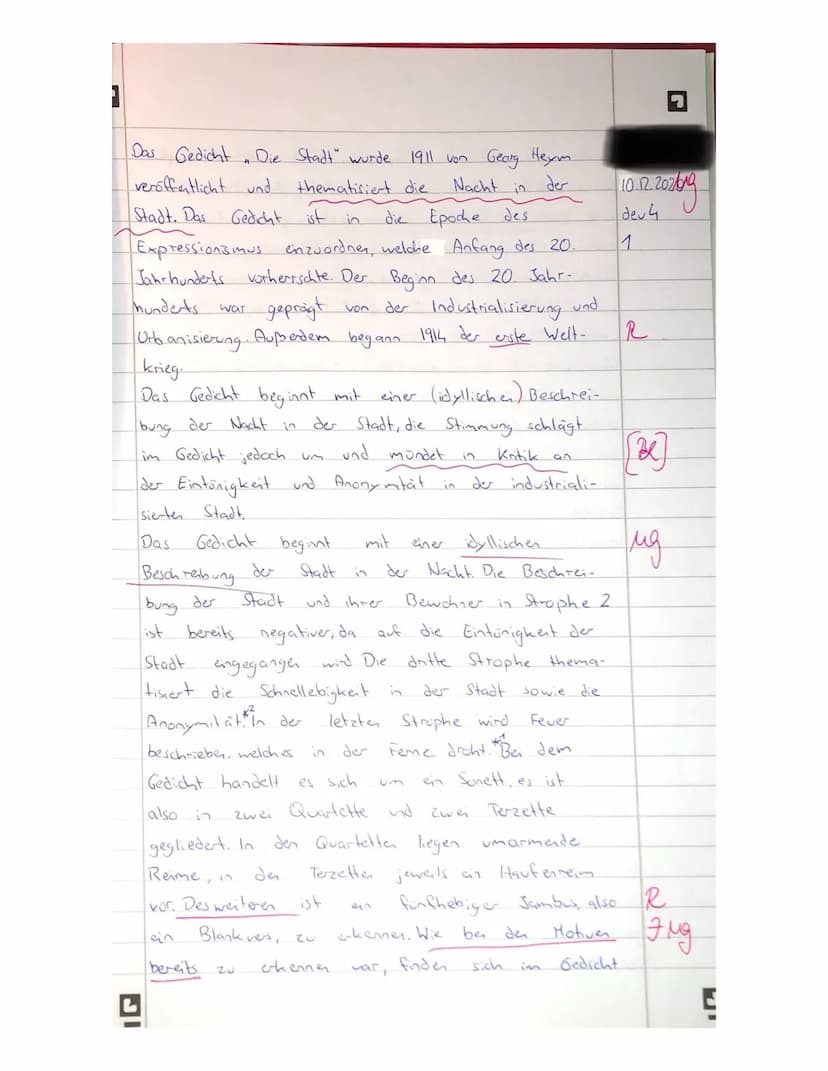 Das Gedicht „Die Stadt" wurde 1911 von Georg Heym
veröffentlicht und thematisiert die Nacht in der
10.12.202
ug
Stadt. Das Gedicht ist in die Epoche des
dev4
Expressionismus einzuordnen, welche Anfang des 20.
1
Jahrhunderts vorherrschte. Der Beginn des 20. Jahr-
hunderts war geprägt von der Industrialisierung und
Urbanisierung. Außerdem begann 1914 der erste Welt-
R
krieg.
Das Gedicht beginnt mit einer (idyllischen) Beschrei-
bung der Nacht in der Stadt, die Stimmung schlägt
im Gedicht jedoch um und mündet in Kritik an
der Eintönigkeit und Anonymität in der industriali-
sierten Stadt.
Das Gedicht beginnt mit einer idyllischen
ug
Beschreibung der Stadt in der Nacht. Die Beschrei-
bung der Stadt und ihrer Bewohner in Strophe 2
ist bereits negativer, da auf die Eintönigkeit der
Stadt engegangen wird Die dritte Strophe thema-
tisiert die Schnellebigkeit in der Stadt sowie die
Anonymität.*2 In der letzten Strophe wird Feuer
beschrieben, welches in der Ferne droht.*1 Bei dem
Gedicht handelt es sich um ein Sonett, es ist
also in zwei Quartette und zwei Terzette
gegliedert. In den Quartetten liegen umarmende
Reime, in den Terzetten jeweils ein Haufenreim
vor. Desweiteren ist ein fünfhebiger Jambus, also
R
ein Blankvers, zu erkennen. Wie bei den Motiven
ug
bereits zu erkennen war, finden sich im Gedicht